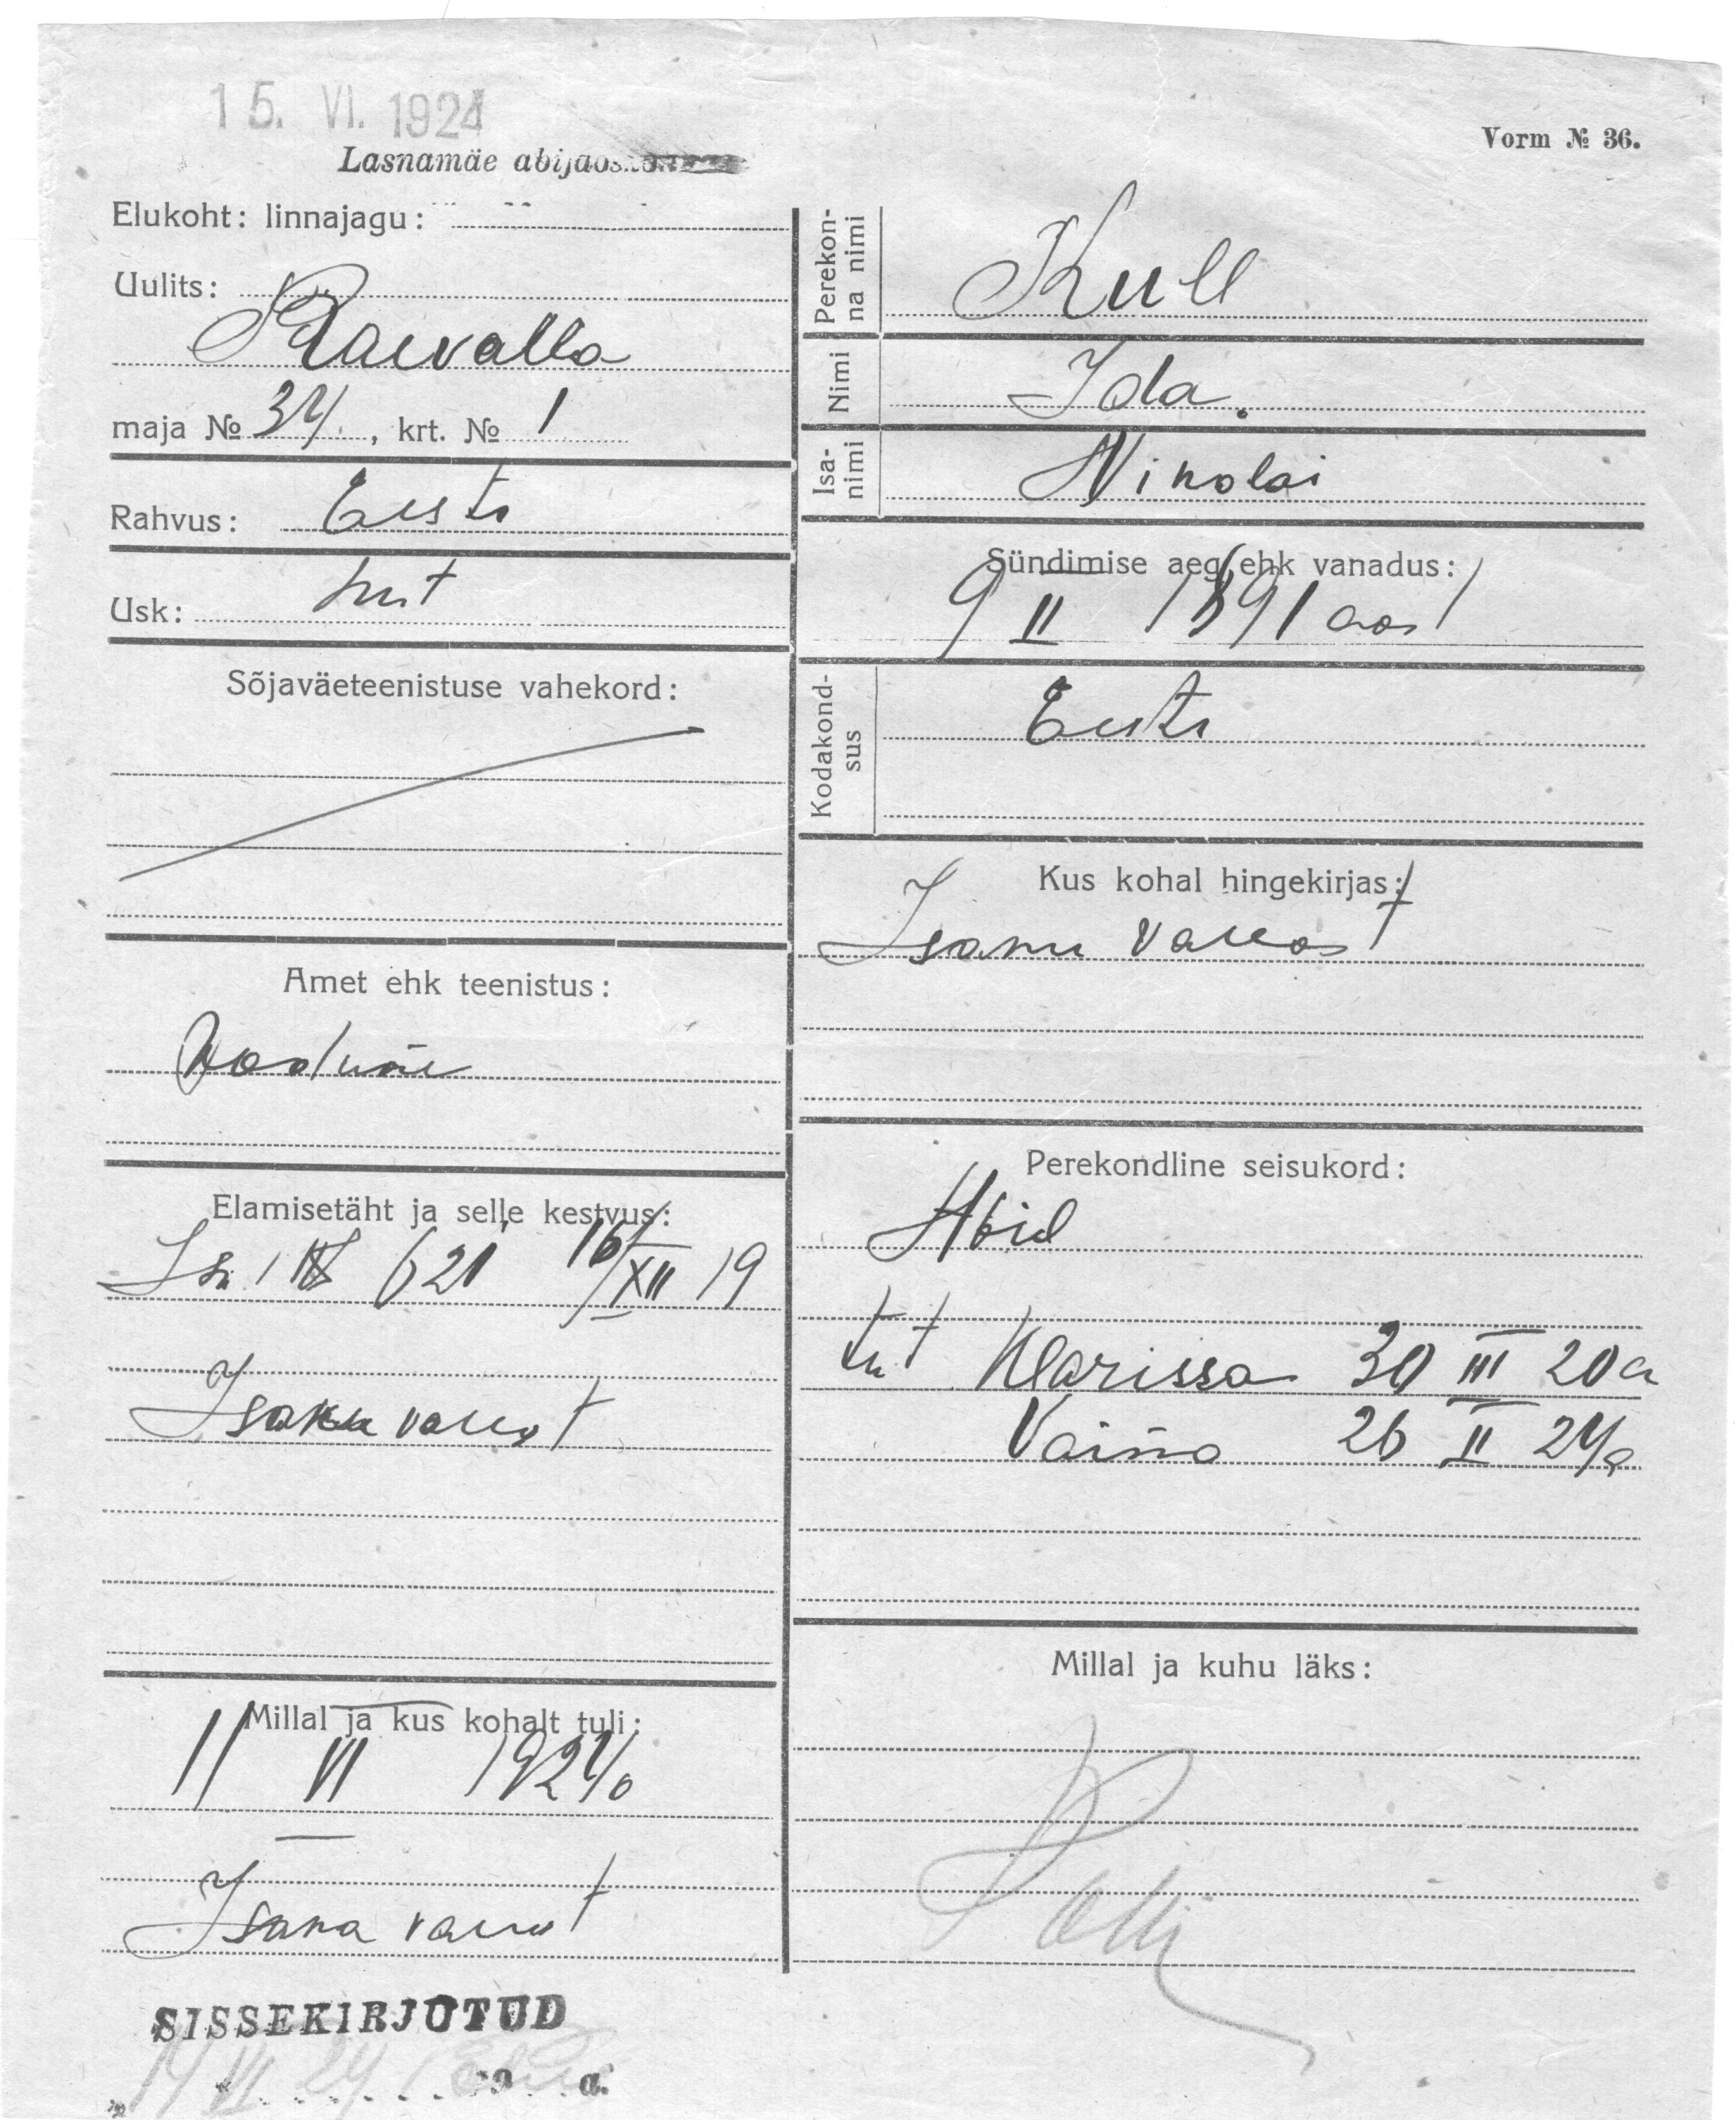 15. VI. 1924
Lasnamäe abijaosk
Vorm № 36.
Elukoht: linnajagu:
Uulits:
Raevalla
maja № 34, krt. № 1
Rahvus: Eesti
Usk: lut
Sõjaväeteenistuse vahekord:
Amet ehk teenistus:
Elamisetäht ja selle kestvus:
621 16/XII 19
Isaku vallast
Millal ja kus kohalt tuli:
11 VI 1924
vallast
SISSEKIRJUTUD
14 VI 24
a.
Perekonna nimi
Kull
Nimi
Ida.
Isanimi
Nikolai
Sündimise aeg ehk vanadus:
9 II 1891 aast
Kodakondsus
Eesti
Kus kohal hingekirjas:
vallast
Perekondline seisukord:
Abiel
tüt Klarissa 30 III 20 a
Vaino 26 II 24 a
Millal ja kuhu läks: